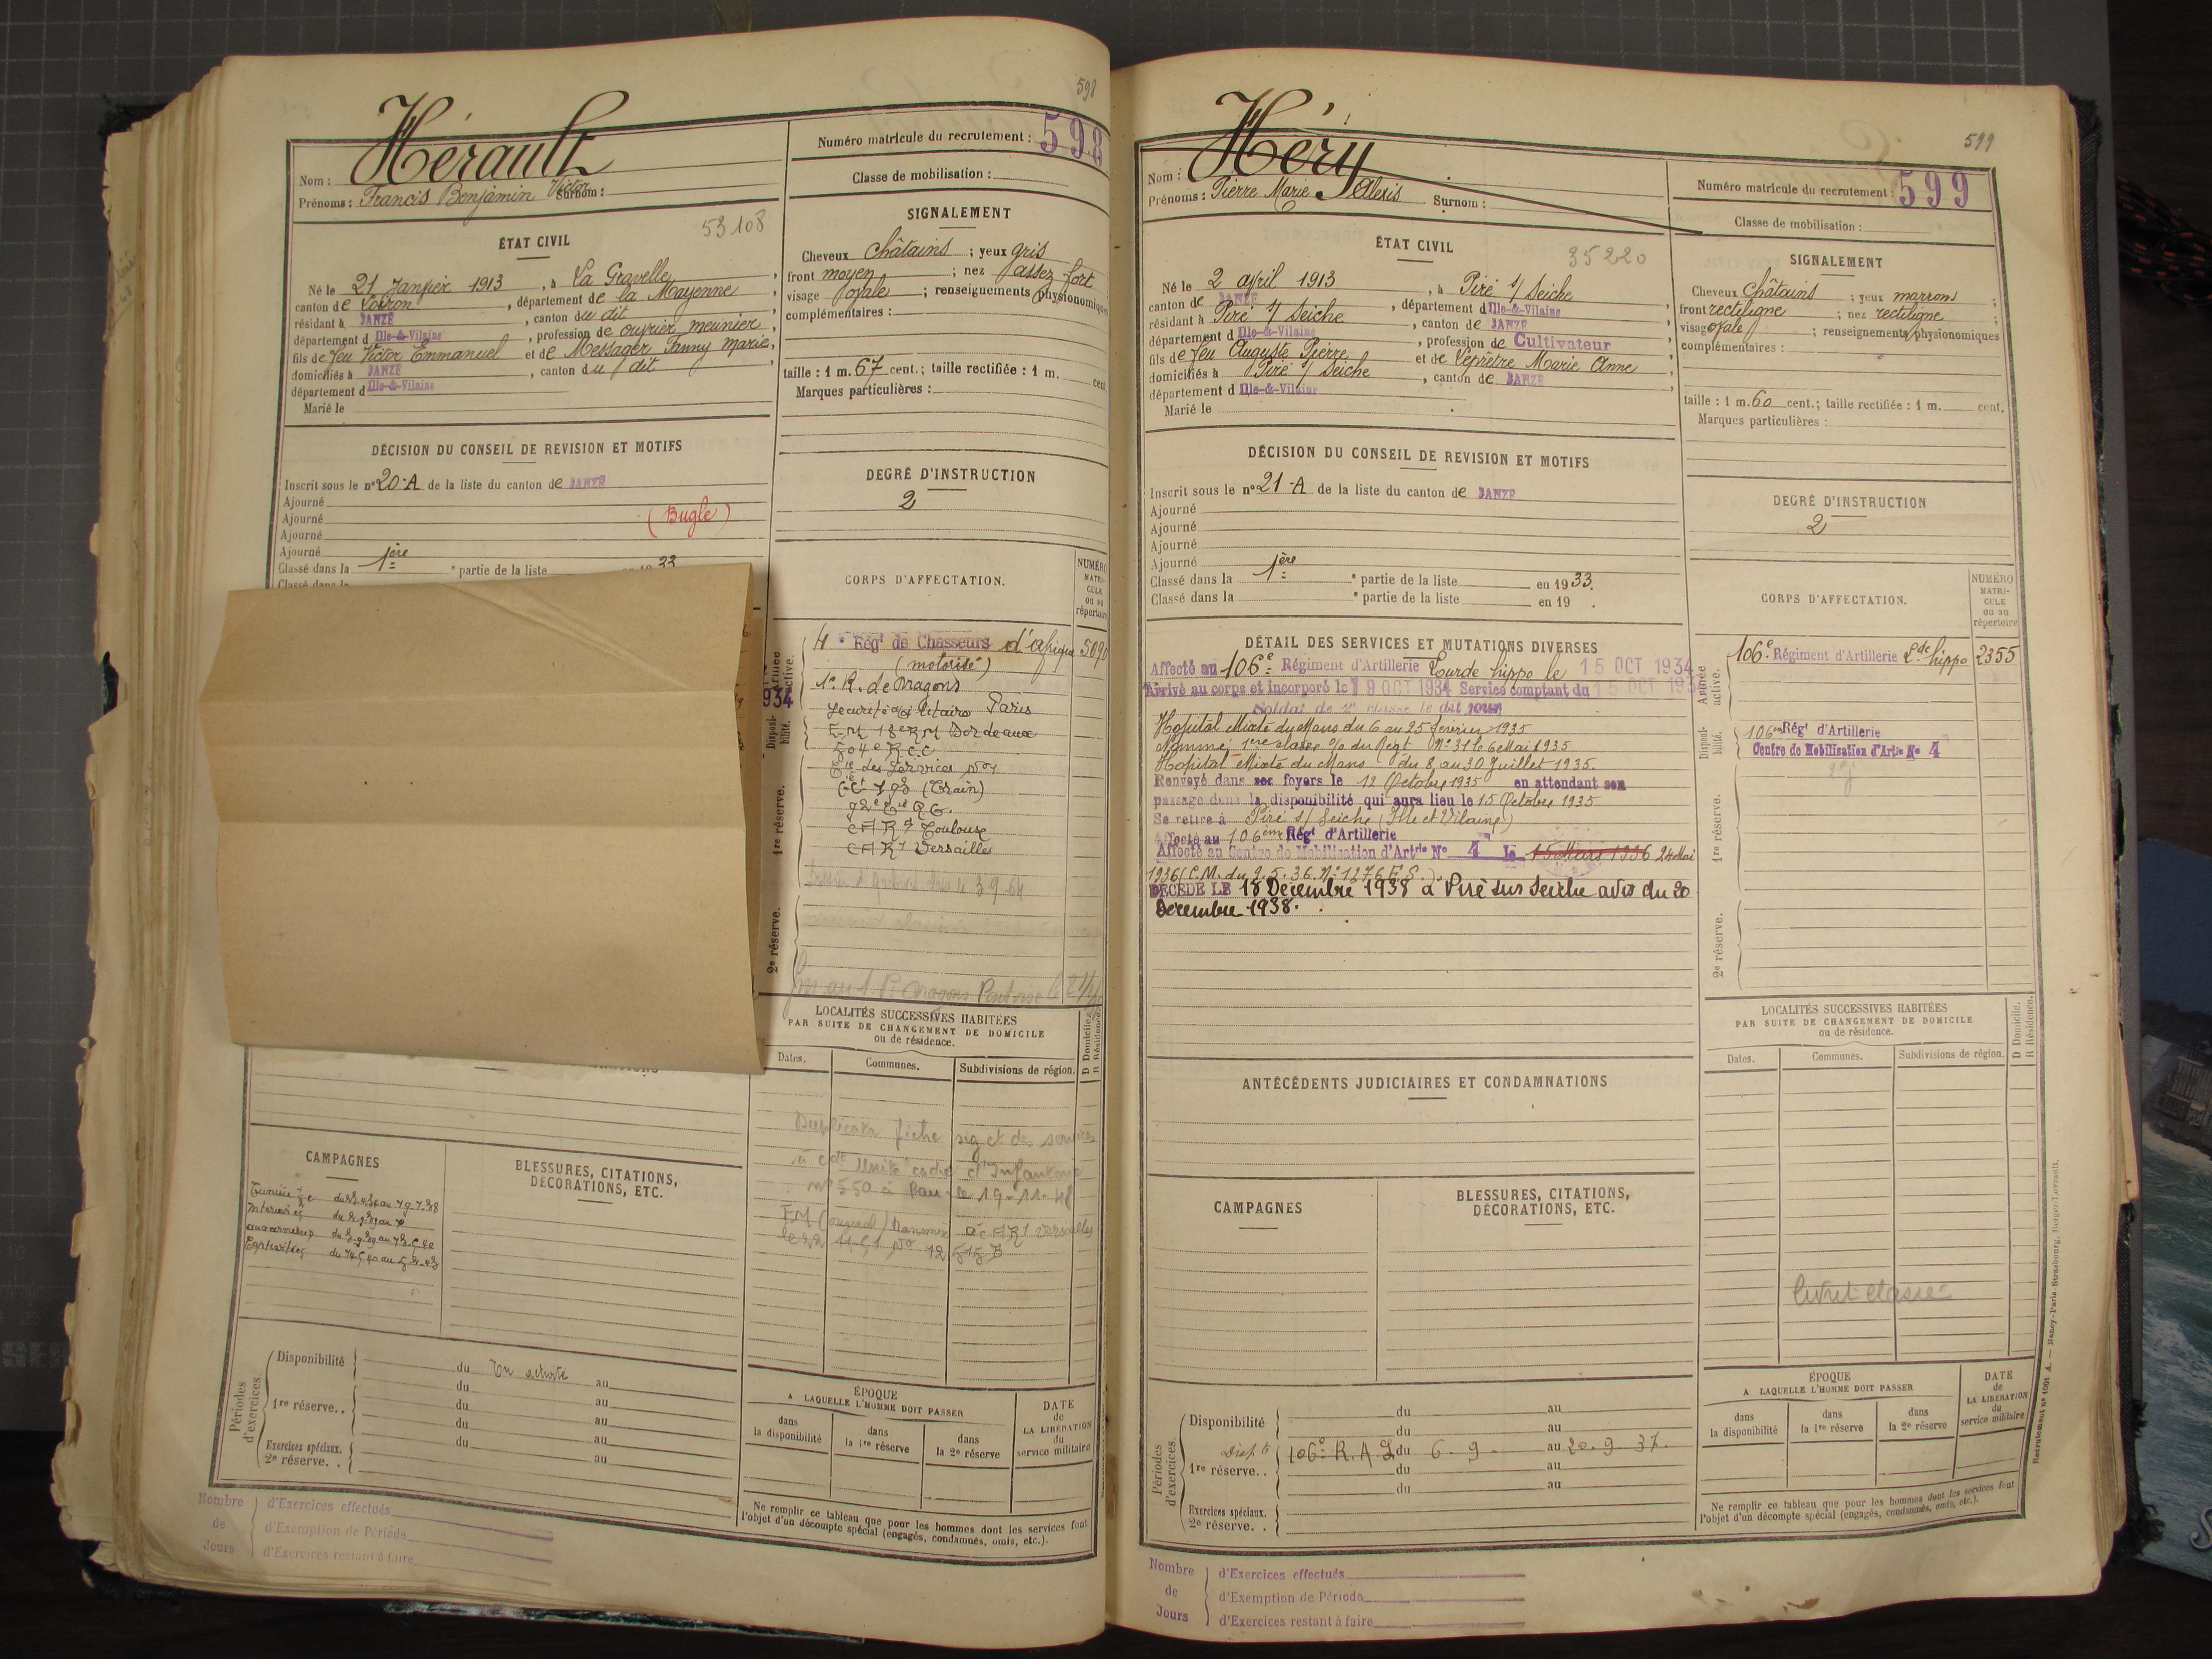 598
Hérault
Nom :
Prénoms : Francis Benjamin Victor Surnom :
Numéro matricule du recrutement : 598
Classe de mobilisation :
53108
ÉTAT CIVIL
Né le 21 Janvier 1913, à La Gravelle,
canton de Loiron, département de la Mayenne
résidant à JANZÉ, canton du dit
département d Ille-&-Vilaine, profession de ouvrier meunier
fils de feu Victor Emmanuel et de Messager Fanny Marie,
domiciliés à JANZÉ, canton du dit
département d Ille-&-Vilaine
Marié le
SIGNALEMENT
Cheveux châtains ; yeux gris
front moyen ; nez assez fort
visage ovale ; renseignements physionomiques
complémentaires :
taille : 1 m. 67 cent.; taille rectifiée : 1 m. cent.
Marques particulières :
DÉCISION DU CONSEIL DE REVISION ET MOTIFS
Inscrit sous le n° 20-A de la liste du canton de JANZÉ
Ajourné
Ajourné (Bugle)
Ajourné
Ajourné
Classé dans la 1ère partie de la liste en 1933
Classé dans la
DEGRÉ D'INSTRUCTION
2
CORPS D'AFFECTATION.
NUMÉRO MATRICULE ou au répertoire
Armée active.
4e Régt de Chasseurs d'Afrique 5090
(motorisé)
1e R. de Dragons
934
Disponibilité.
Sécurité Militaire Paris
EM 18e RM Bordeaux
504e R.C.C
Cie des Services N°1
(Train)
1re réserve.
Toulouse
Versailles
2e réserve.
LOCALITÉS SUCCESSIVES HABITÉES
PAR SUITE DE CHANGEMENT DE DOMICILE
ou de résidence.
D Domicile.
R Résidence.
Dates. Communes. Subdivisions de région.
Duplicata fiche sig et des services
à cdt Unité cadre d'Infanterie
n° 550 à Pau le 19-11-48
CAMPAGNES
BLESSURES, CITATIONS,
DÉCORATIONS, ETC.
Périodes d'exercices.
Disponibilité du En activité au
du au
1re réserve.. du au
du au
Exercices spéciaux. du au
2e réserve. . du au
ÉPOQUE
A LAQUELLE L'HOMME DOIT PASSER
dans la disponibilité
dans la 1re réserve
dans la 2e réserve
DATE de LA LIBÉRATION du service militaire
Ne remplir ce tableau que pour les hommes dont les services font
l'objet d'un décompte spécial (engagés, condamnés, omis, etc.).
Nombre de Jours
d'Exercices effectués
d'Exemption de Période
d'Exercices restant à faire
599
Héry
Nom :
Prénoms : Pierre Marie Alexis Surnom :
Numéro matricule du recrutement : 599
Classe de mobilisation :
35220
ÉTAT CIVIL
Né le 2 avril 1913, à Piré s/ Seiche
canton de JANZÉ, département d Ille-&-Vilaine
résidant à Piré s/ Seiche, canton de JANZÉ
département d Ille-&-Vilaine, profession de Cultivateur
fils de feu Auguste Pierre et de Leprêtre Marie Anne
domiciliés à Piré s/ Seiche, canton de JANZÉ
département d Ille-&-Vilaine
Marié le
SIGNALEMENT
Cheveux châtains ; yeux marrons ;
front rectiligne ; nez rectiligne ;
visage ovale ; renseignements physionomiques
complémentaires :
taille : 1 m. 60 cent.; taille rectifiée : 1 m. cent.
Marques particulières :
DÉCISION DU CONSEIL DE REVISION ET MOTIFS
Inscrit sous le n° 21-A de la liste du canton de JANZÉ
Ajourné
Ajourné
Ajourné
Ajourné
Classé dans la 1ère partie de la liste en 1933.
Classé dans la partie de la liste en 19 .
DEGRÉ D'INSTRUCTION
2
DÉTAIL DES SERVICES ET MUTATIONS DIVERSES
Affecté au 106e Régiment d'Artillerie Lourde hippo le 15 OCT 1934
Arrivé au corps et incorporé le 19 OCT 1934 Service comptant du 15 OCT 1934
Soldat de 2e classe le dit jour
Hopital Mixte du Mans du 6 au 25 Février 1935
Nommé 1ère classe o/o du Régt N° 31 le 6 Mai 1935
Hopital Mixte du Mans du 8 au 30 Juillet 1935.
Renvoyé dans ses foyers le 12 Octobre 1935 en attendant son
passage dans la disponibilité qui aura lieu le 15 Octobre 1935
Se retire à Piré s/ Seiche (Ille et Vilaine)
Affecté au 106ème Régt d'Artillerie
Affecté au Centre de Mobilisation d'Artie N° 4 le 15 Mars 1936 24 Mai
1936 (C.M. du 9.5.36. N° 1276 E.S.).
DÉCÉDÉ LE 18 Décembre 1938 à Piré sur Seiche avis du 20
Décembre 1938.
CORPS D'AFFECTATION.
NUMÉRO MATRICULE ou au répertoire
Armée active.
106e Régiment d'Artillerie Lde hippo 2355
Disponibilité.
106em Régt d'Artillerie
Centre de Mobilisation d'Artie N° 4
1re réserve.
2e réserve.
ANTÉCÉDENTS JUDICIAIRES ET CONDAMNATIONS
LOCALITÉS SUCCESSIVES HABITÉES
PAR SUITE DE CHANGEMENT DE DOMICILE
ou de résidence.
D Domicile.
R Résidence.
Dates. Communes. Subdivisions de région.
livret classé
CAMPAGNES
BLESSURES, CITATIONS,
DÉCORATIONS, ETC.
Périodes d'exercices.
Disponibilité du au
du au
Dispté 106e R.A.L du 6.9. au 20.9.37.
1re réserve.. du au
du au
Exercices spéciaux.
2e réserve. .
ÉPOQUE
A LAQUELLE L'HOMME DOIT PASSER
dans la disponibilité
dans la 1re réserve
dans la 2e réserve
DATE de LA LIBÉRATION du service militaire
Ne remplir ce tableau que pour les hommes dont les services font
l'objet d'un décompte spécial (engagés, condamnés, omis, etc.).
Nombre de Jours
d'Exercices effectués
d'Exemption de Période
d'Exercices restant à faire
Recrutement n° 1001 A. — Nancy-Paris-Strasbourg, Berger-Levrault.